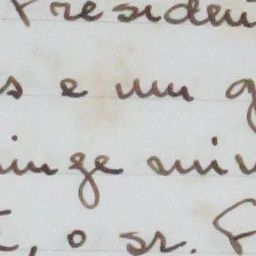 Presiden
s e um g
inge mi
, o sr. P